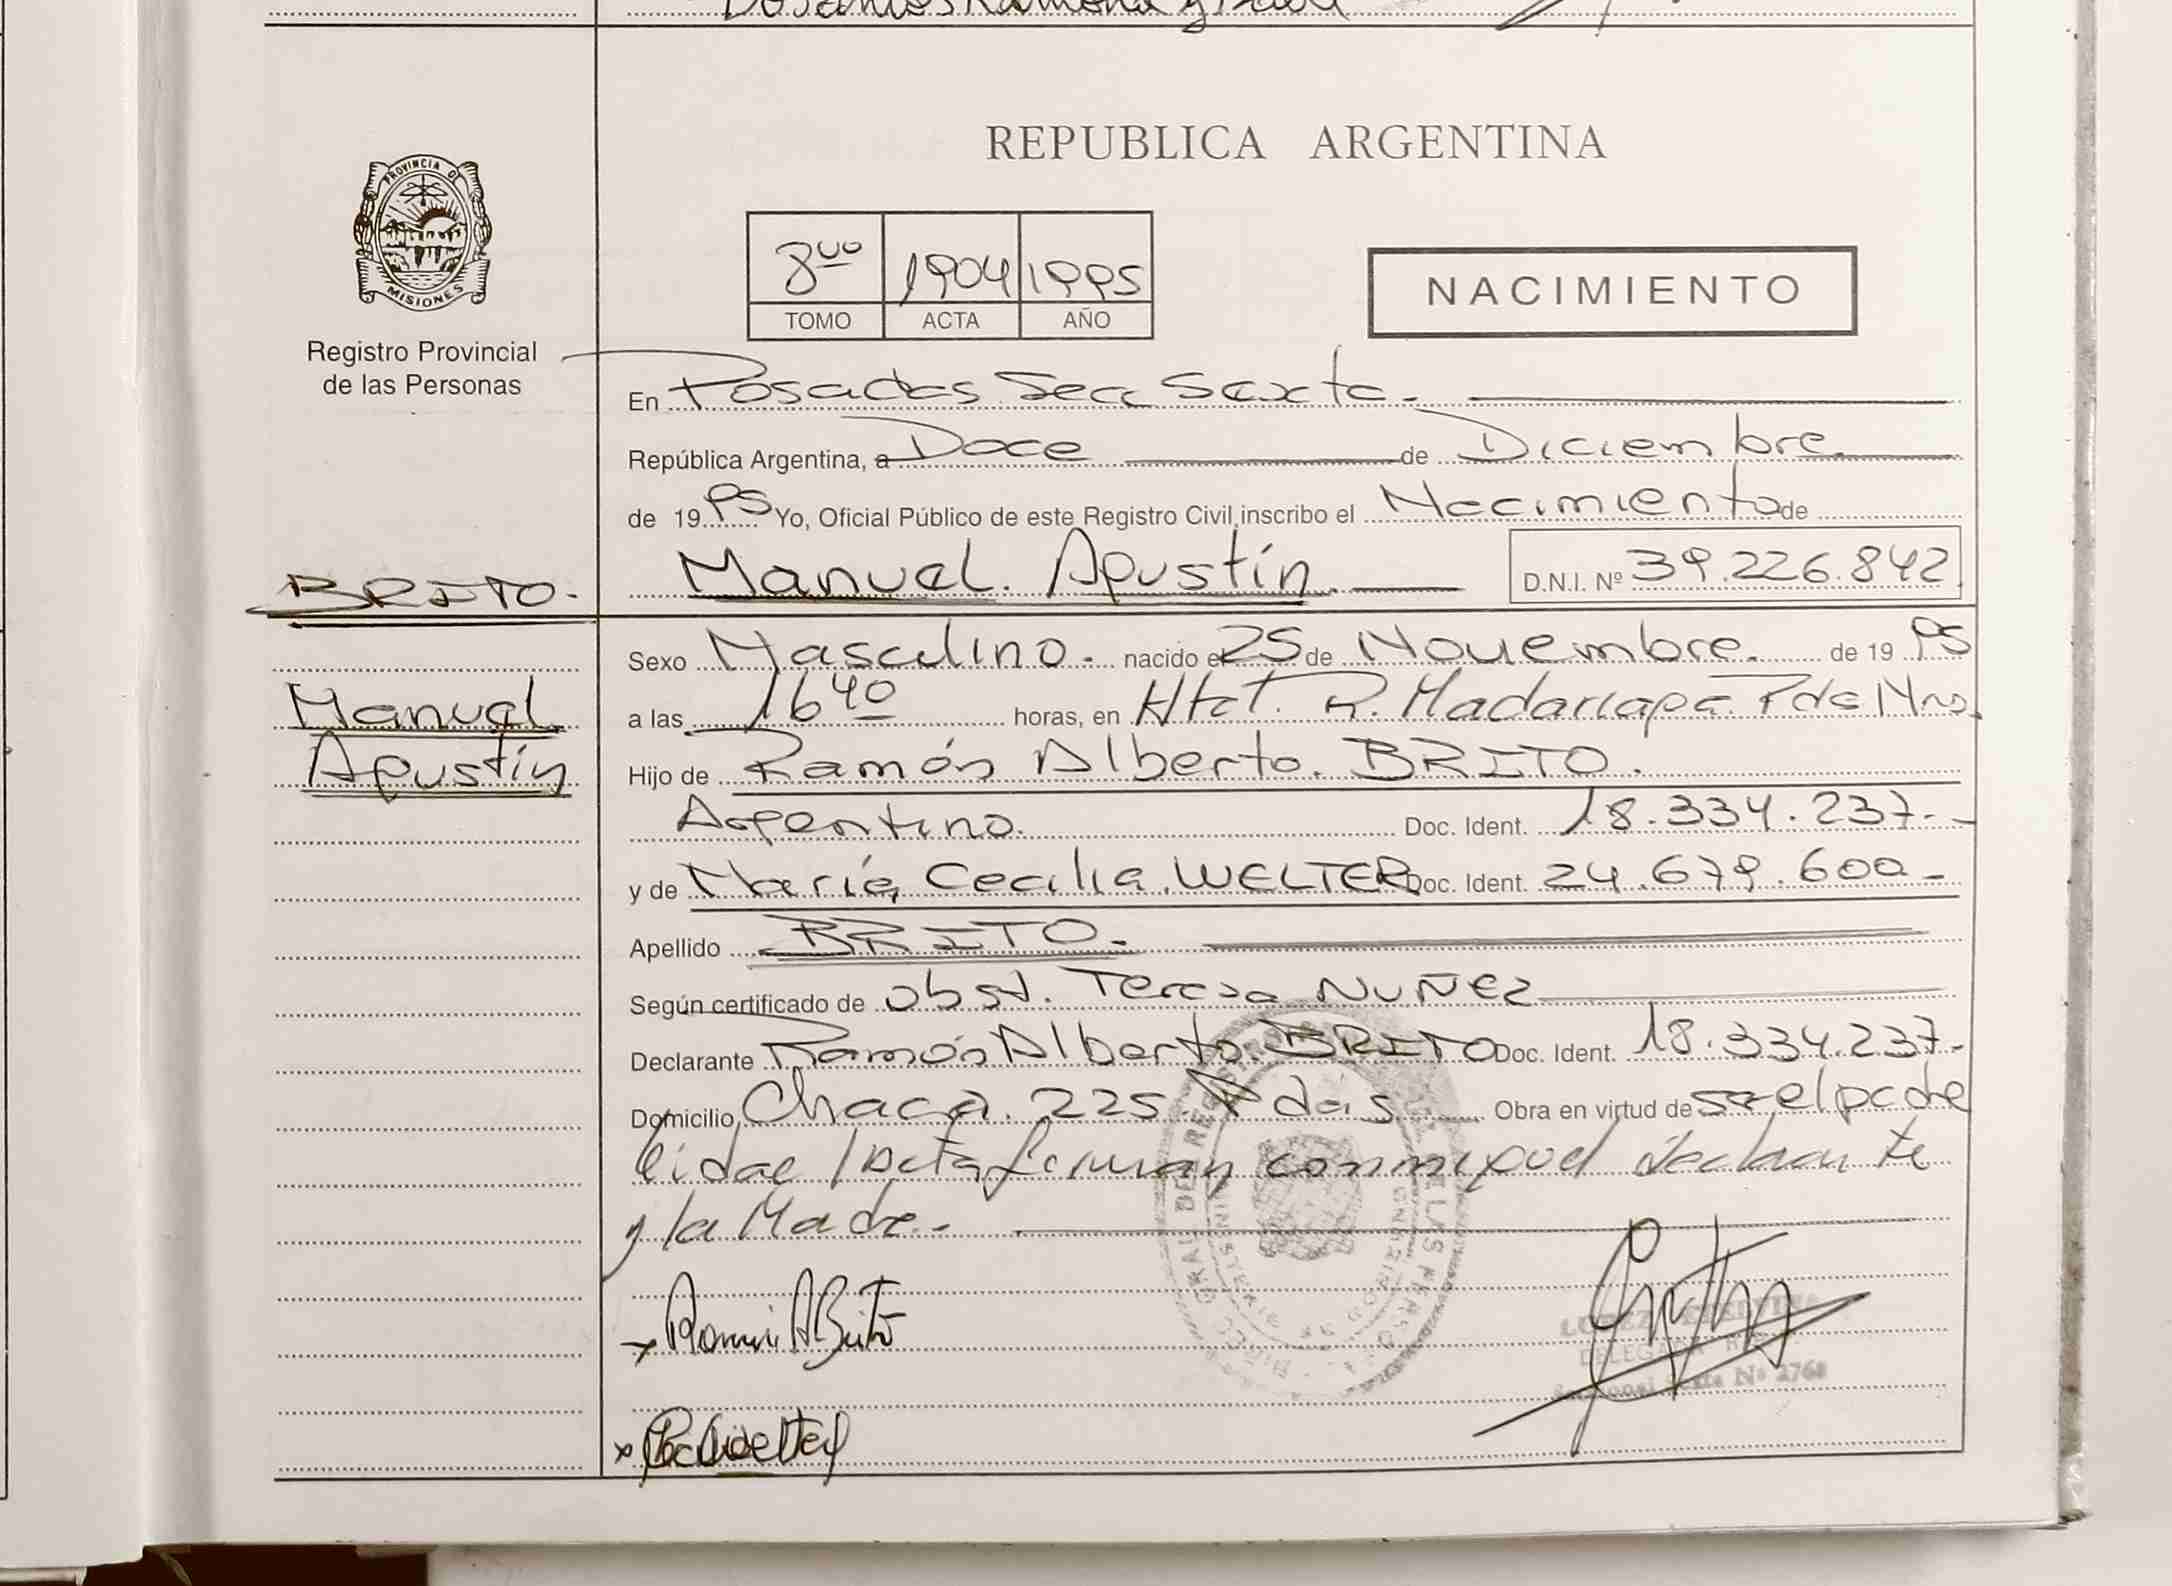 PROVINCIA DE
MISIONES
Registro Provincial
de las Personas
REPUBLICA ARGENTINA
8vo 1904 1995
TOMO ACTA AÑO
NACIMIENTO
En Posadas Secc Sexta.
República Argentina, a Doce de Diciembre
de 1995 Yo, Oficial Público de este Registro Civil inscribo el Nacimiento de
BRITO.
Manuel. Agustín. D.N.I. Nº 39.226.842
Sexo Masculino. nacido el 25 de Noviembre. de 1995
Manuel
a las 16 40 horas, en Htal. R. Madariaga. Pdas Mnes.
Agustín
Hijo de Ramón Alberto. BRITO.
Argentino. Doc. Ident. 18.334.237.-
y de María Cecilia. WELTER Doc. Ident. 24.679.600.-
Apellido BRITO.
Según certificado de obst. Teresa NUÑEZ
Declarante Ramón Alberto. BRITO Doc. Ident. 18.334.237.-
Domicilio Chaca. 225. Pdas Obra en virtud de ser el padre
leida el Acta firman conmigo el declarante
y la Madre.-
DELEGADA
Seccional Sexta Nº 2768